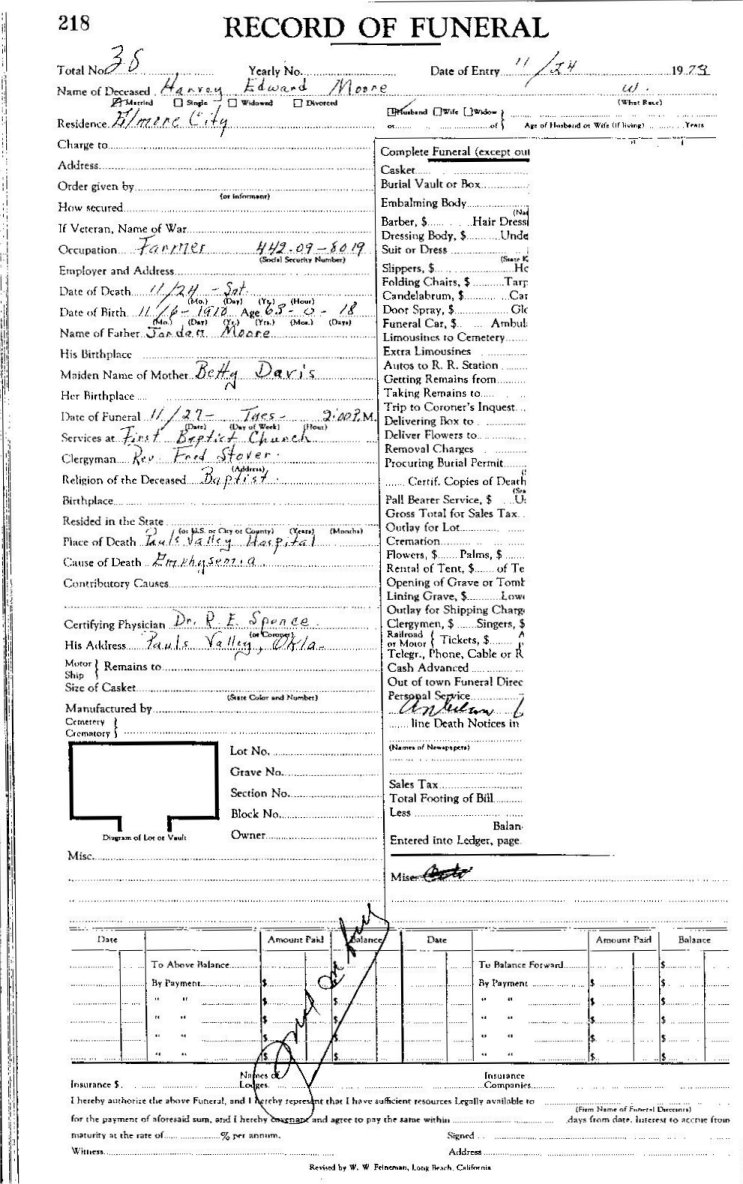 218 RECORD OF FUNERAL
Total No. 38 Yearly No. Date of Entry 11/24 19 79
Name of Deceased Harvey Edward Moore W.
Married Single Widowed Divorced Husband Wife Widow } (What Race)
or of } Age of Husband or Wife (if living) Years
Residence Elmore City
Charge to
Complete Funeral (except out
Address
Casket
Order given by
(or informant)
Burial Vault or Box
How secured
Embalming Body
If Veteran, Name of War
Barber, $ Hair Dressi
Dressing Body, $ Unde
Occupation Farmer 442-09-8019
(Social Security Number)
Suit or Dress
(State K
Employer and Address
Slippers, $ Ho
Folding Chairs, $ Tarp
Date of Death 11/24 - Sat.
(Mo.) (Day) (Yr.) (Hour)
Candelabrum, $ Car
Date of Birth 11/6-1916 Age 63-0-18
(Mo.) (Day) (Yr.) (Yrs.) (Mos.) (Days)
Door Spray, $ Glo
Funeral Car, $ Ambul
Name of Father Jordan Moore
Limousines to Cemetery
His Birthplace
Extra Limousines
Autos to R. R. Station
Maiden Name of Mother Betty Davis
Getting Remains from
Her Birthplace
Taking Remains to
Trip to Coroner's Inquest
Date of Funeral 11/27- Tues- 2:00 P.M.
(Date) (Day of Week) (Hour)
Delivering Box to
Services at First Baptist Church
Deliver Flowers to
Clergyman Rev. Fred Stover
(Address)
Removal Charges
Procuring Burial Permit
Religion of the Deceased Baptist
Certif. Copies of Death
Birthplace
Pall Bearer Service, $
Resided in the State
(or U.S. or City or County) (Years) (Months)
Gross Total for Sales Tax
Outlay for Lot
Place of Death Pauls Valley Hospital
Cremation
Cause of Death Emphysemia
Flowers, $ Palms, $
Rental of Tent, $ of Te
Contributory Causes
Opening of Grave or Tomb
Lining Grave, $ Lowe
Outlay for Shipping Charge
Certifying Physician Dr. R. E. Spence
(or Coroner)
Clergymen, $ Singers, $
His Address Pauls Valley, Okla-
Railroad or Motor { Tickets, $
Telegr., Phone, Cable or R
Motor Ship } Remains to
Cash Advanced
Size of Casket
(State Color and Number)
Out of town Funeral Direc
Personal Service
Manufactured by
Cemetery Crematory }
line Death Notices in
Lot No.
(Names of Newspapers)
Grave No.
Section No.
Sales Tax
Total Footing of Bill
Block No.
Less
Balan
Diagram of Lot or Vault
Owner
Entered into Ledger, page
Misc.
Misc.
Date Amount Paid Balance Date Amount Paid Balance
To Above Balance To Balance Forward
By Payment $ $ By Payment $ $
" " $ $ " " $ $
" " $ $ " " $ $
" " $ $ " " $ $
" " $ $ " " $ $
Insurance $ Names of Lodges Insurance Companies
I hereby authorize the above Funeral, and I hereby represent that I have sufficient resources Legally available to
(Firm Name of Funeral Directors)
for the payment of aforesaid sum, and I hereby covenant and agree to pay the same within days from date. Interest to accrue from
maturity at the rate of % per annum. Signed
Witness Address
Revised by W. W. Feineman, Long Beach, California